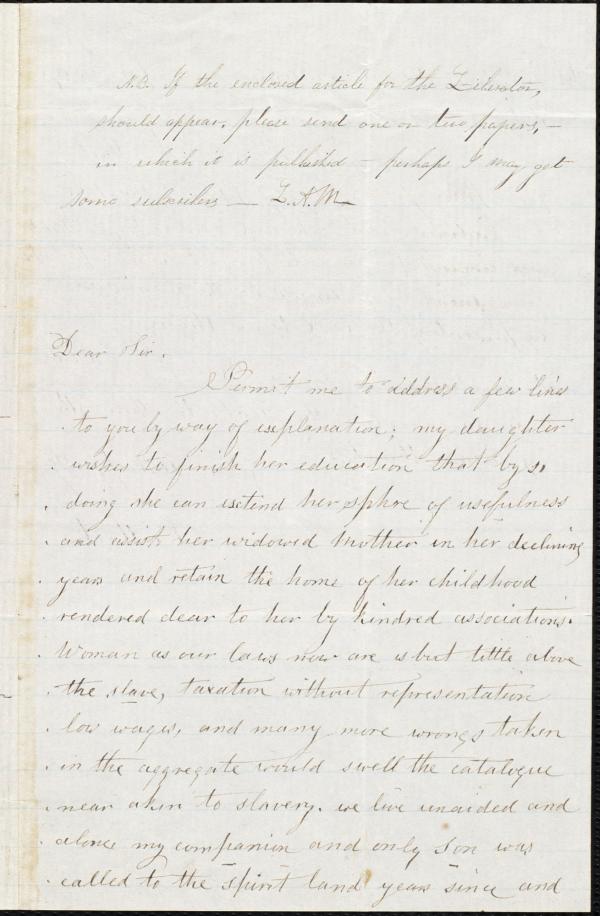 N.B. If the enclosed article for the Liberator,
should appear, please send one or two papers, —
in which it is published — perhaps I may get
some subscribers — L.A.M—
Dear Sir.
Permit me to address a few lines
to you by way of explanation; my daughter
wishes to finish her education that by so
doing she can extend her sphre of usefulness
and assist her widowed Mother in her declining
years and retain the home of her childhood
rendered dear to her by kindred associations.
Woman as our laws now are is but little above
the slave, taxation without representation
low wages, and many more wrongs taken
in the aggregate would swell the catalogue
near akin to slavery. we live unaided and
alone my companion and only Son was
called to the spirit land years since and